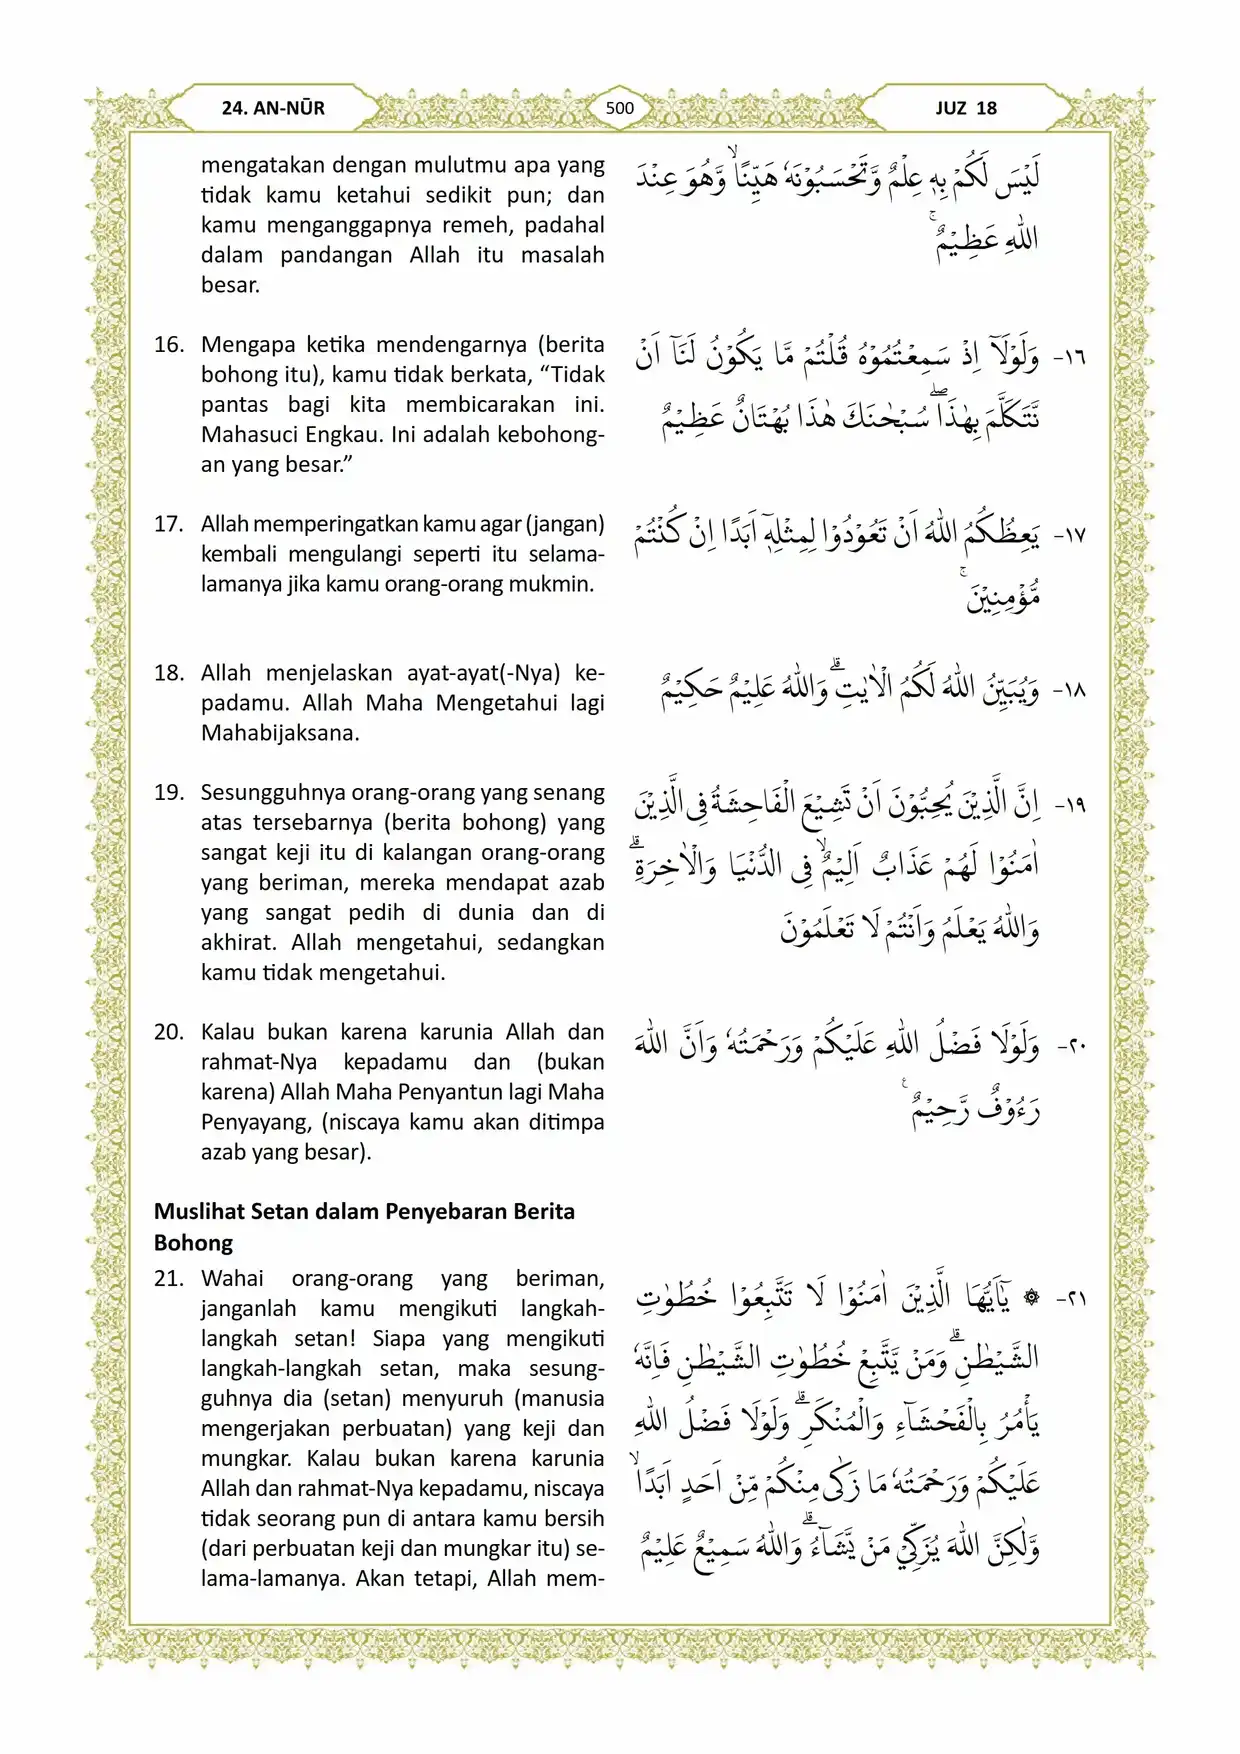 24. AN-NŪR
500
JUZ 18
mengatakan dengan mulutmu apa yang
tidak kamu ketahui sedikit pun; dan
kamu menganggapnya remeh, padahal
dalam pandangan Allah itu masalah
besar.
لَيْسَ لَكُمْ بِهٖ عِلْمٌ وَّتَحْسَبُوْنَهٗ هَيِّنًاۙ وَّهُوَ عِنْدَ
اللّٰهِ عَظِيْمٌۚ
16. Mengapa ketika mendengarnya (berita
bohong itu), kamu tidak berkata, “Tidak
pantas bagi kita membicarakan ini.
Mahasuci Engkau. Ini adalah kebohong-
an yang besar.”
١٦- وَلَوْلَآ اِذْ سَمِعْتُمُوْهُ قُلْتُمْ مَّا يَكُوْنُ لَنَآ اَنْ
نَّتَكَلَّمَ بِهٰذَاۖ سُبْحٰنَكَ هٰذَا بُهْتَانٌ عَظِيْمٌ
17. Allah memperingatkan kamu agar (jangan)
kembali mengulangi seperti itu selama-
lamanya jika kamu orang-orang mukmin.
١٧- يَعِظُكُمُ اللّٰهُ اَنْ تَعُوْدُوْا لِمِثْلِهٖٓ اَبَدًا اِنْ كُنْتُمْ
مُّؤْمِنِيْنَۚ
18. Allah menjelaskan ayat-ayat(-Nya) ke-
padamu. Allah Maha Mengetahui lagi
Mahabijaksana.
١٨- وَيُبَيِّنُ اللّٰهُ لَكُمُ الْاٰيٰتِۗ وَاللّٰهُ عَلِيْمٌ حَكِيْمٌ
19. Sesungguhnya orang-orang yang senang
atas tersebarnya (berita bohong) yang
sangat keji itu di kalangan orang-orang
yang beriman, mereka mendapat azab
yang sangat pedih di dunia dan di
akhirat. Allah mengetahui, sedangkan
kamu tidak mengetahui.
١٩- اِنَّ الَّذِيْنَ يُحِبُّوْنَ اَنْ تَشِيْعَ الْفَاحِشَةُ فِى الَّذِيْنَ
اٰمَنُوْا لَهُمْ عَذَابٌ اَلِيْمٌۙ فِى الدُّنْيَا وَالْاٰخِرَةِۗ
وَاللّٰهُ يَعْلَمُ وَاَنْتُمْ لَا تَعْلَمُوْنَ
20. Kalau bukan karena karunia Allah dan
rahmat-Nya kepadamu dan (bukan
karena) Allah Maha Penyantun lagi Maha
Penyayang, (niscaya kamu akan ditimpa
azab yang besar).
٢٠- وَلَوْلَا فَضْلُ اللّٰهِ عَلَيْكُمْ وَرَحْمَتُهٗ وَاَنَّ اللّٰهَ
رَءُوْفٌ رَّحِيْمٌ ࣖ
Muslihat Setan dalam Penyebaran Berita
Bohong
21. Wahai orang-orang yang beriman,
janganlah kamu mengikuti langkah-
langkah setan! Siapa yang mengikuti
langkah-langkah setan, maka sesung-
guhnya dia (setan) menyuruh (manusia
mengerjakan perbuatan) yang keji dan
mungkar. Kalau bukan karena karunia
Allah dan rahmat-Nya kepadamu, niscaya
tidak seorang pun di antara kamu bersih
(dari perbuatan keji dan mungkar itu) se-
lama-lamanya. Akan tetapi, Allah mem-
٢١- ۞ يٰٓاَيُّهَا الَّذِيْنَ اٰمَنُوْا لَا تَتَّبِعُوْا خُطُوٰتِ
الشَّيْطٰنِۗ وَمَنْ يَّتَّبِعْ خُطُوٰتِ الشَّيْطٰنِ فَاِنَّهٗ
يَأْمُرُ بِالْفَحْشَاۤءِ وَالْمُنْكَرِۗ وَلَوْلَا فَضْلُ اللّٰهِ
عَلَيْكُمْ وَرَحْمَتُهٗ مَا زَكٰى مِنْكُمْ مِّنْ اَحَدٍ اَبَدًاۙ
وَّلٰكِنَّ اللّٰهَ يُزَكِّيْ مَنْ يَّشَاۤءُۗ وَاللّٰهُ سَمِيْعٌ عَلِيْمٌ